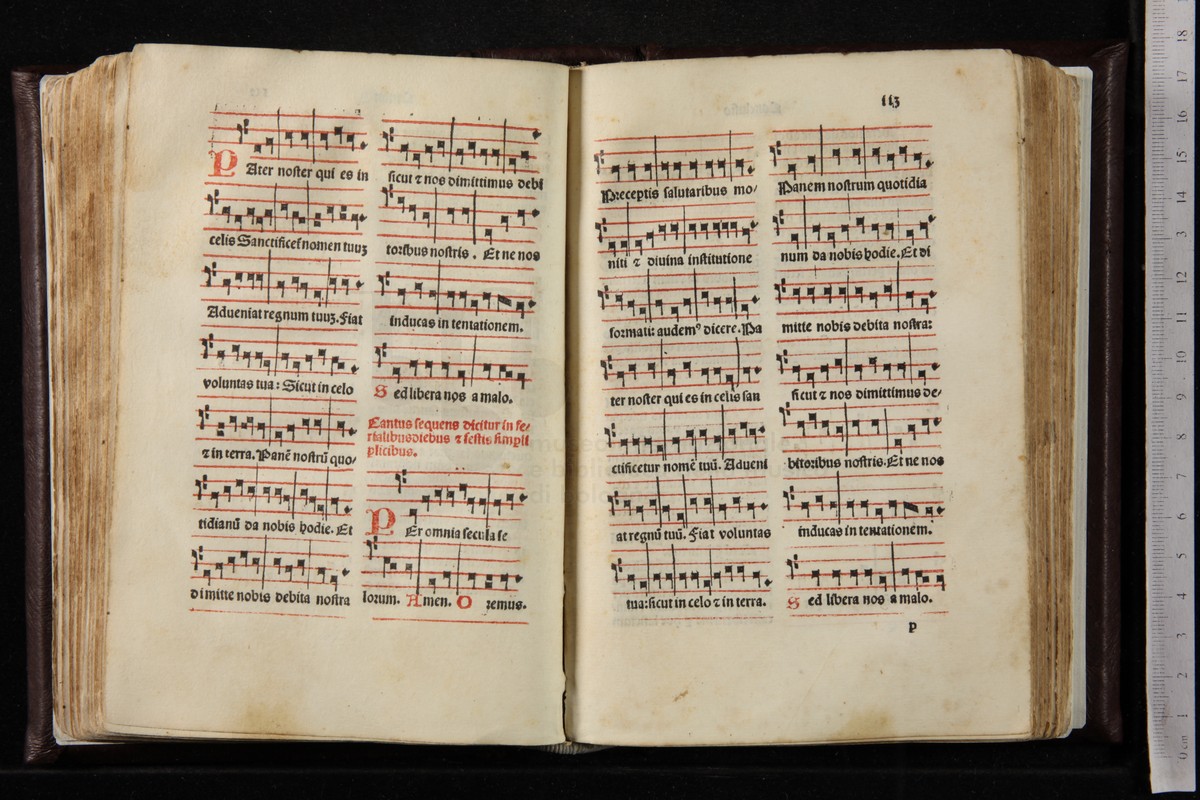 PAter noster qui es in
celis Sanctificet nomen tuuʒ
Adueniat regnum tuuʒ. Fiat
voluntas tua: Sicut in celo
⁊ in terra. Panē nostrū quo/
tidianū da nobis hodie. Et
dimitte nobis debita nostra
sicut ⁊ nos dimittimus debi
toribus nostris. Et ne nos
inducas in tentationem.
Sed libera nos a malo.
Cantus sequens dicitur in fe/
rialibus diebus ⁊ festis simpli
plicibus.
PEr omnia secula se
lorum. Amen. Oremus.
113
Preceptis salutaribus mo/
niti ⁊ diuina institutione
formati: audemꝰ dicere. Pa
ter noster qui es in celis san
ctificetur nomē tuū. Adueni
at regnū tuū. Fiat voluntas
tua: sicut in celo ⁊ in terra.
Panem nostrum quotidia
num da nobis hodie. Et di
mitte nobis debita nostra:
sicut ⁊ nos dimittimus de/
bitoribus nostris. Et ne nos
inducas in tentationem.
Sed libera nos a malo.
p
0 cm 1 2 3 4 5 6 7 8 9 10 11 12 13 14 15 16 17 18